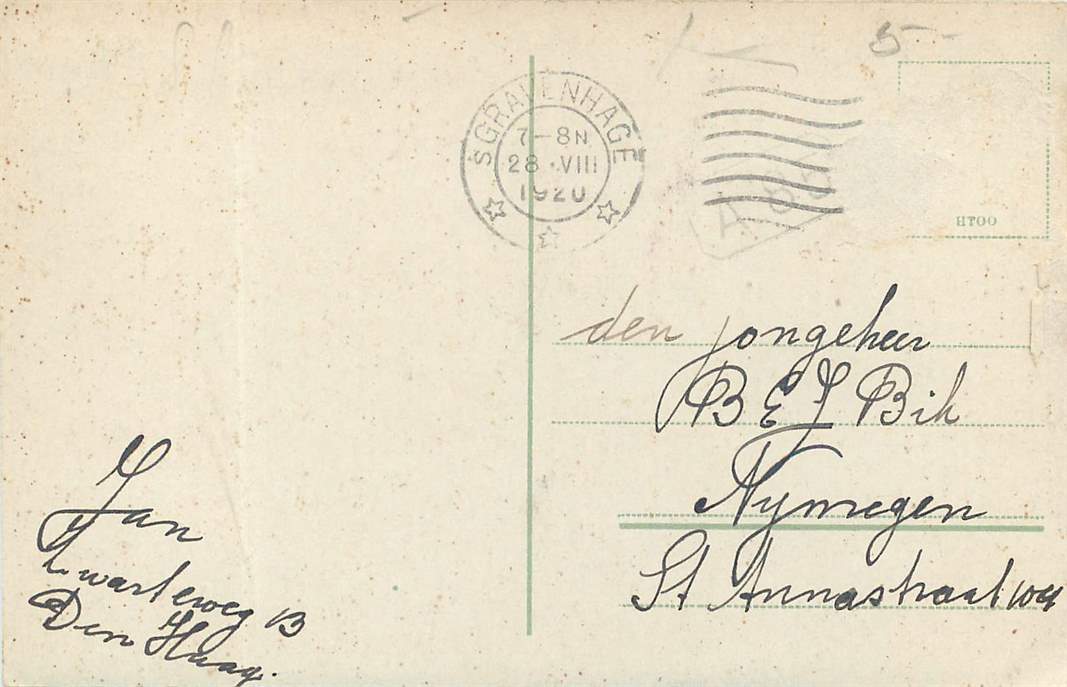 5-
'SGRAVENHAGE
7-8N
28.VIII
1920
HTOO
den jongeheer
B E J Bik
Nymegen
St Annastraat
Jan
Zwarteweg 13
Den Haag.